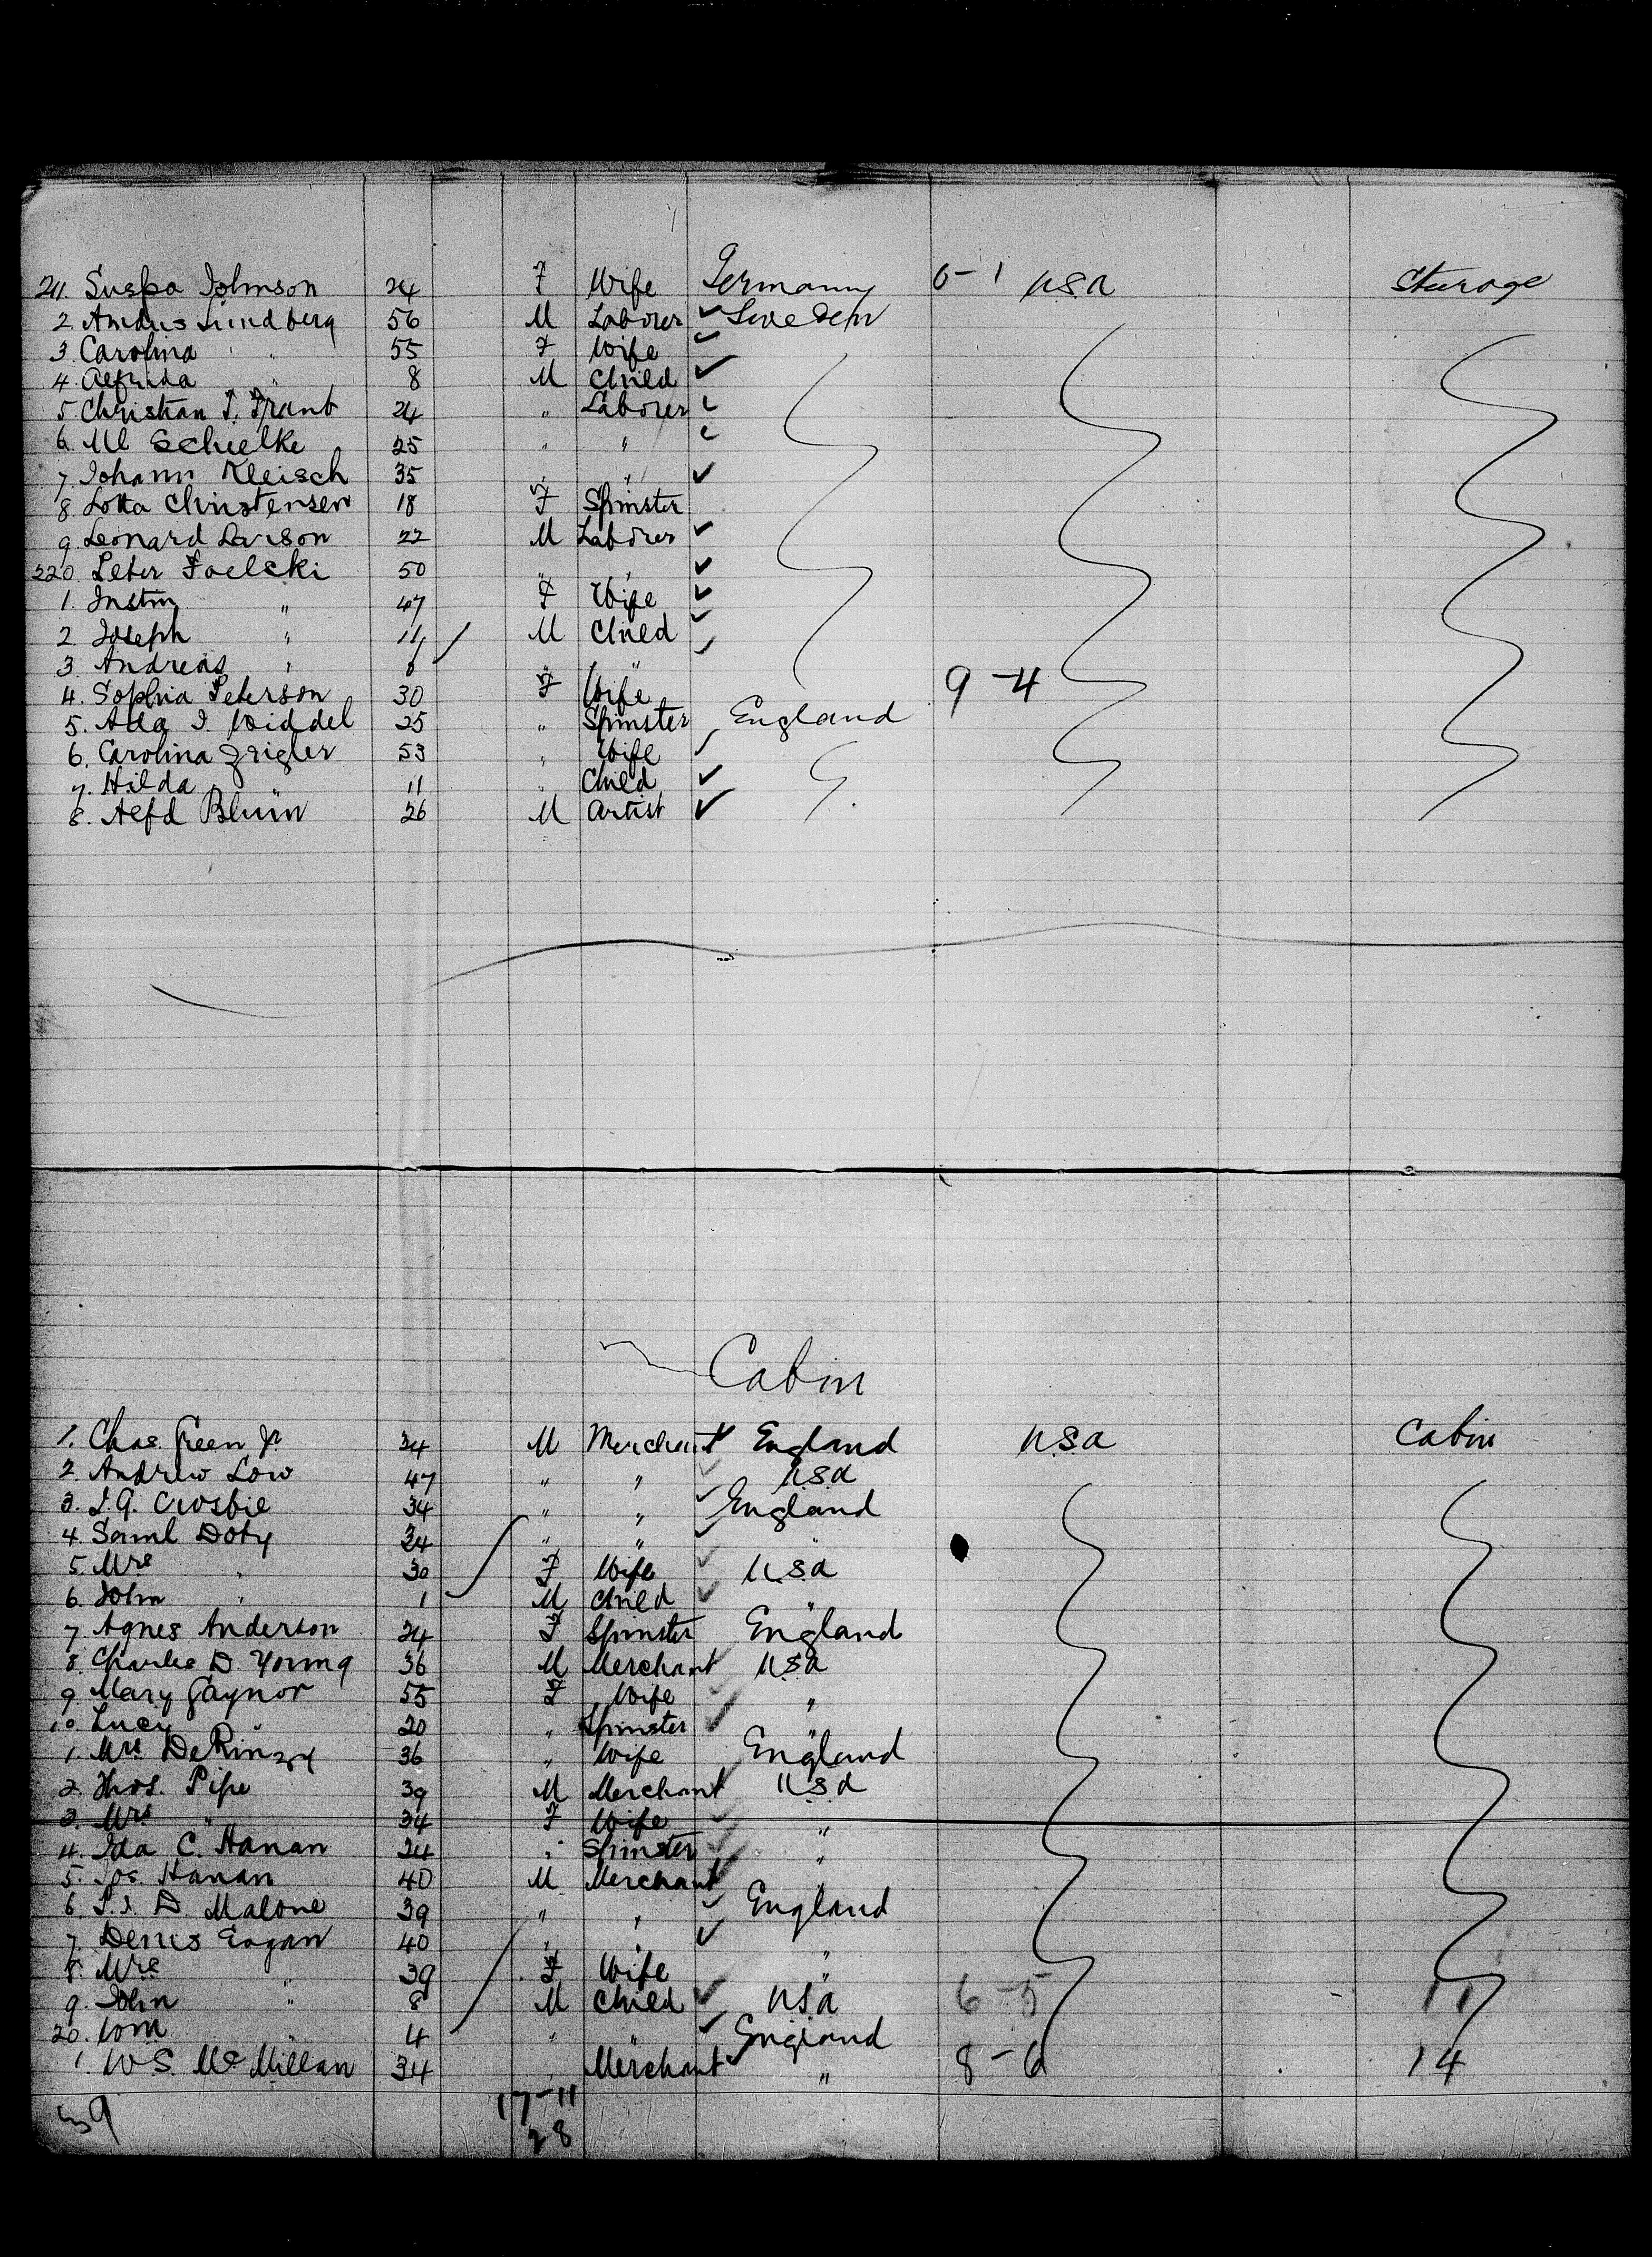 211. Suspa Johnson 24 F Wife Germany 0-1 U.S.A Sturage
2. Andus Lundberg 56 M Laborer Sweden
3. Carolina " 55 F Wife
4. Alfrida " 8 M Child
5. Christian T. Frant 24 " Laborer
6. Ml Schielke 25 " "
7. Johann Kleisch 35 " "
8. Lotta Christensen 18 F Spinster
9. Leonard Larson 22 M Laborer
220. Peter Foelski 50 " "
1. " 47 F Wife
2. Joseph " 11 M Child
3. Andreas " "
4. Sophia Peterson 30 F Wife 9-4
5. Widdel 25 " Spinster England
6. Carolina Zeigler 53 " Wife
7. Hilda 11 " Child
8. Alfd Blum 26 M Artist
Cabin
1. Chas. Green Jr 34 M Merchant England U.S.A Cabin
2. Andrew Low 47 " " U.S.A
3. J.G. Crosbie 34 " " England
4. Saml Doty 34 " " "
5. Mrs " 30 F Wife U.S.A
6. John " 1 M Child "
7. Agnes Anderson 24 F Spinster England
8. Charles D. Young 36 M Merchant U.S.A
9. Mary Gaynor 55 F Wife "
10. Lucy " 20 " Spinster "
1. Mrs DeRinzy 36 " Wife England
2. Thos. Pipe 39 M Merchant U.S.A
3. Mrs " 34 F Wife "
4. Ida C. Hanan 24 " Spinster "
5. Jos. Hanan 40 M Merchant "
6. D. Malone 39 " " England
7. Denis Eagan 40 " " "
8. Mrs " 39 F Wife "
9. John " 8 M Child U.S.A 6-5 11
20. Wm " 4 " " England
1. W S. McMillan 34 " Merchant " 8-6 14
17-11
28